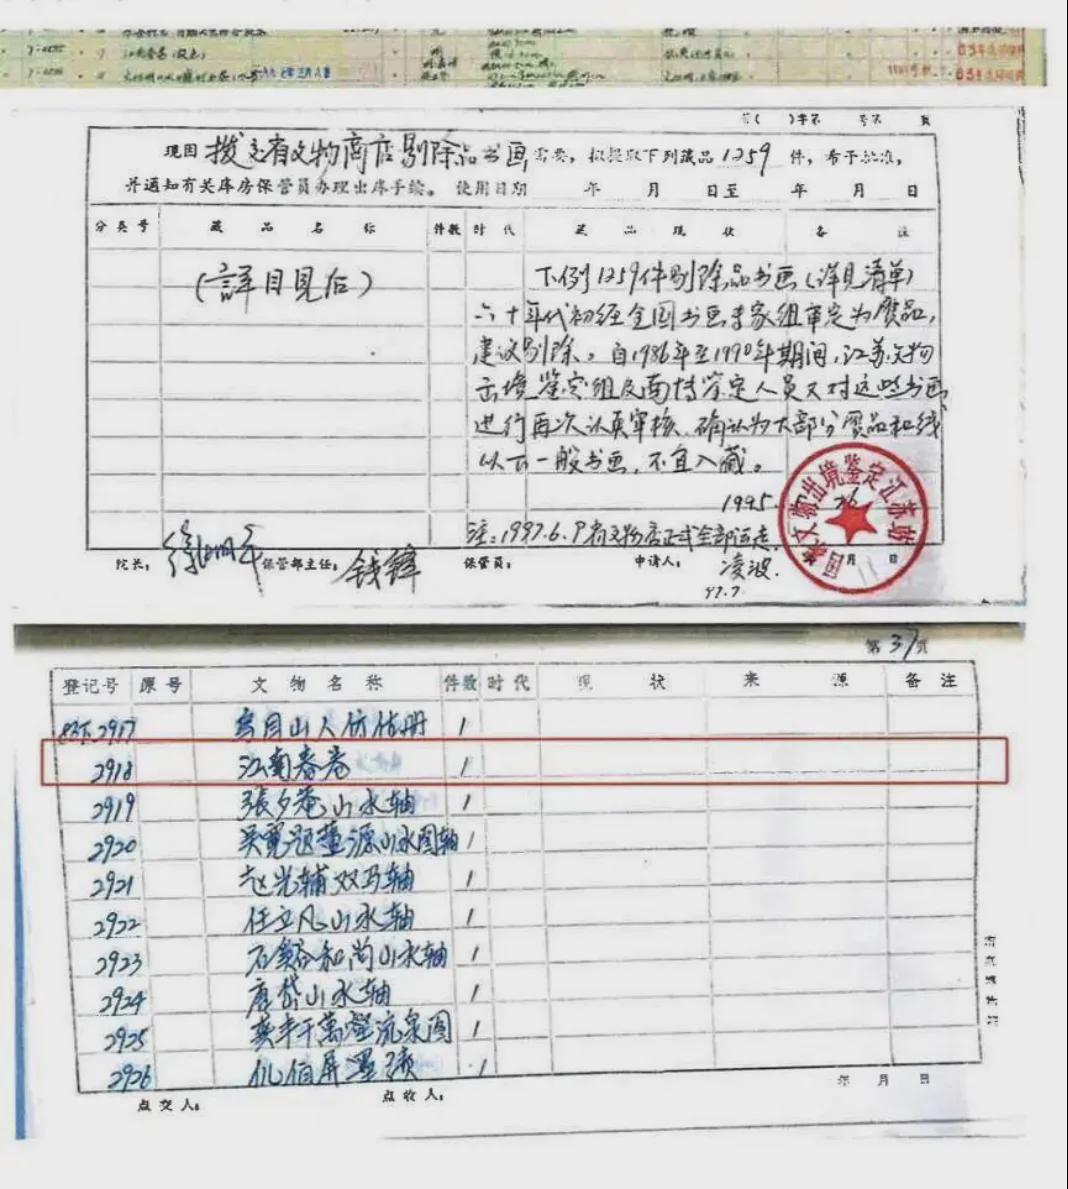 江南春卷
第( )字第 号第 页
现因 拨交省文物商店剔除品书画 需要，拟提取下列藏品1259件，希予批准，
并通知有关库房保管员办理出库手续。使用日期 年 月 日至 年 月 日
分类号 藏品名称 件数 时代 藏品现状 备注
(詳目見后)
下例1259件剔除品书画(详见清单)
六十年代初经全国书画专家组审定为赝品，
建议剔除。自1986年至1990年期间，江苏文物
出境鉴定组及南博鉴定人员又对这些书画
进行再次认真审核、确认为大部分赝品和线
以下一般书画，不宜入藏。
1995.
月 日
国家文物出境鉴定江苏站
注：1997.6.9省文物店正式全部运走。
院长： 徐湖平 保管部主任： 钱锋 保管员： 申请人： 凌波.
97.7.
第37页
登记号 原号 文物名称 件数 时代 现状 来源 备注
2917 仿借册 1
2918 江南春卷 1
2919 張夕菴山水轴 1
2920 吴寛题董源山水图轴 1
2921 赵光辅双马轴 1
2922 任立凡山水轴 1
2923 石谿和尚山水轴 1
2924 唐岱山水轴 1
2925 龚半千萬壑流泉图 1
2926 伊伯屏墨 1
年 月 日
点交人： 点收人：